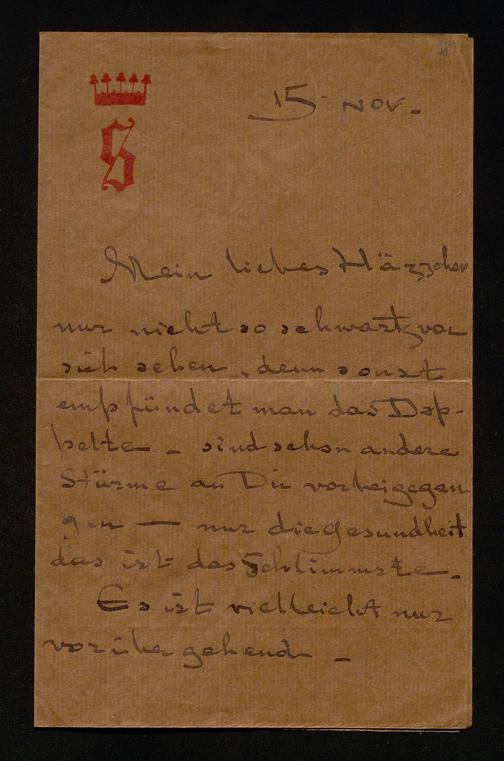 S
15 NOV.
Mein liebes Häzzchen
nur nicht so schwartz vor
sich sehen, denn sonst
empfindet man das Dop-
pelte - sind schon andere
Stürme an Dir vorbeigegan
gen — nur die Gesundheit
das ist das Schlimmste.
Es ist vielleicht nur
vorübergehend -